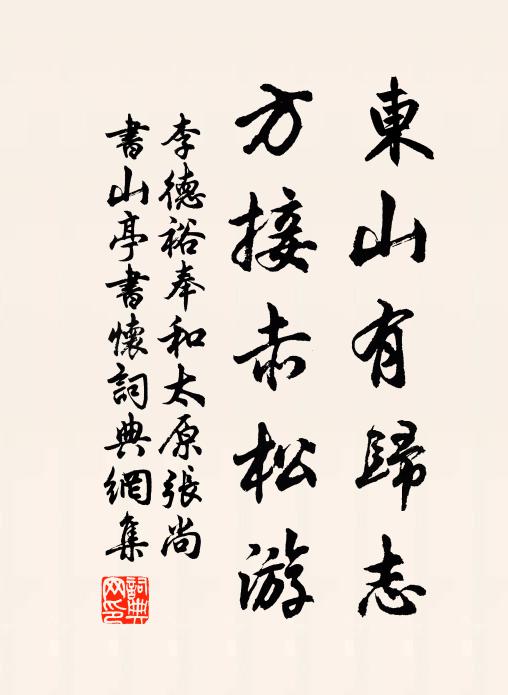 東山有歸志
方接赤松游
李德裕奉和太原張尚
書山亭書懷詞典網集
詞典
网印